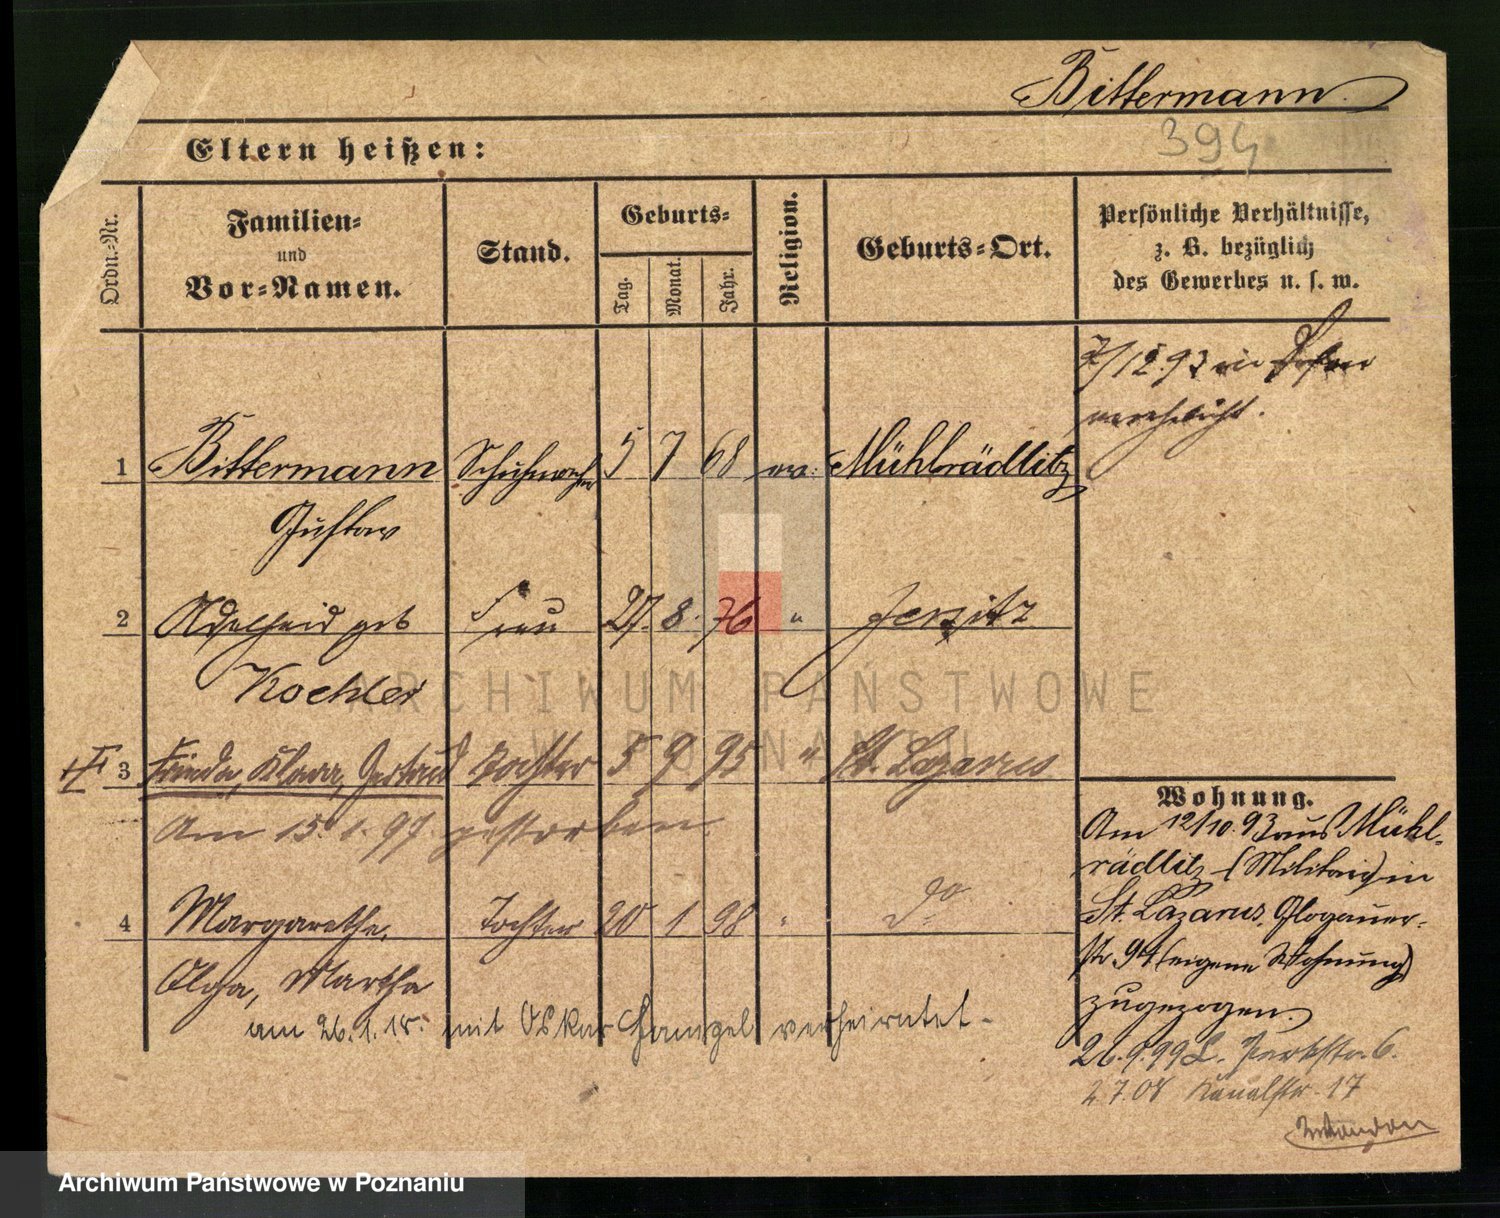 Bittermann
394
Eltern heißen:
Ordn.-Nr.
Familien-
und
Vor-Namen.
Stand.
Geburts-
Tag.
Monat.
Jahr.
Religion.
Geburts-Ort.
Persönliche Verhältnisse,
z. B. bezüglich
des Gewerbes u. s. w.
7/12.93 in Posen
verehelicht.
1 Bittermann Schuhmacher 5 7 68 ev. Mühlrädlitz
Gustav
2 Adelheid geb Frau 27. 8. 76 " Jersitz
Koehler
3 Frieda, Klara, Gertrud Tochter 5 9 95 " St. Lazarus
Am 15. 1. 97 gestorben.
4 Margarethe, Tochter 20 1 98 " do
Olga, Martha
am 26.1.18. mit Oskar verheiratet.
Wohnung.
Am 12/10.93 aus Mühl-
rädlitz (Militair) in
St. Lazarus, Glogauer-
str 94 (eigene Wohnung)
zugezogen.
26.9.99 L. 6.
2.7.08 Kanalstr. 17
ARCHIWUM PAŃSTWOWE
W POZNANIU
Archiwum Państwowe w Poznaniu